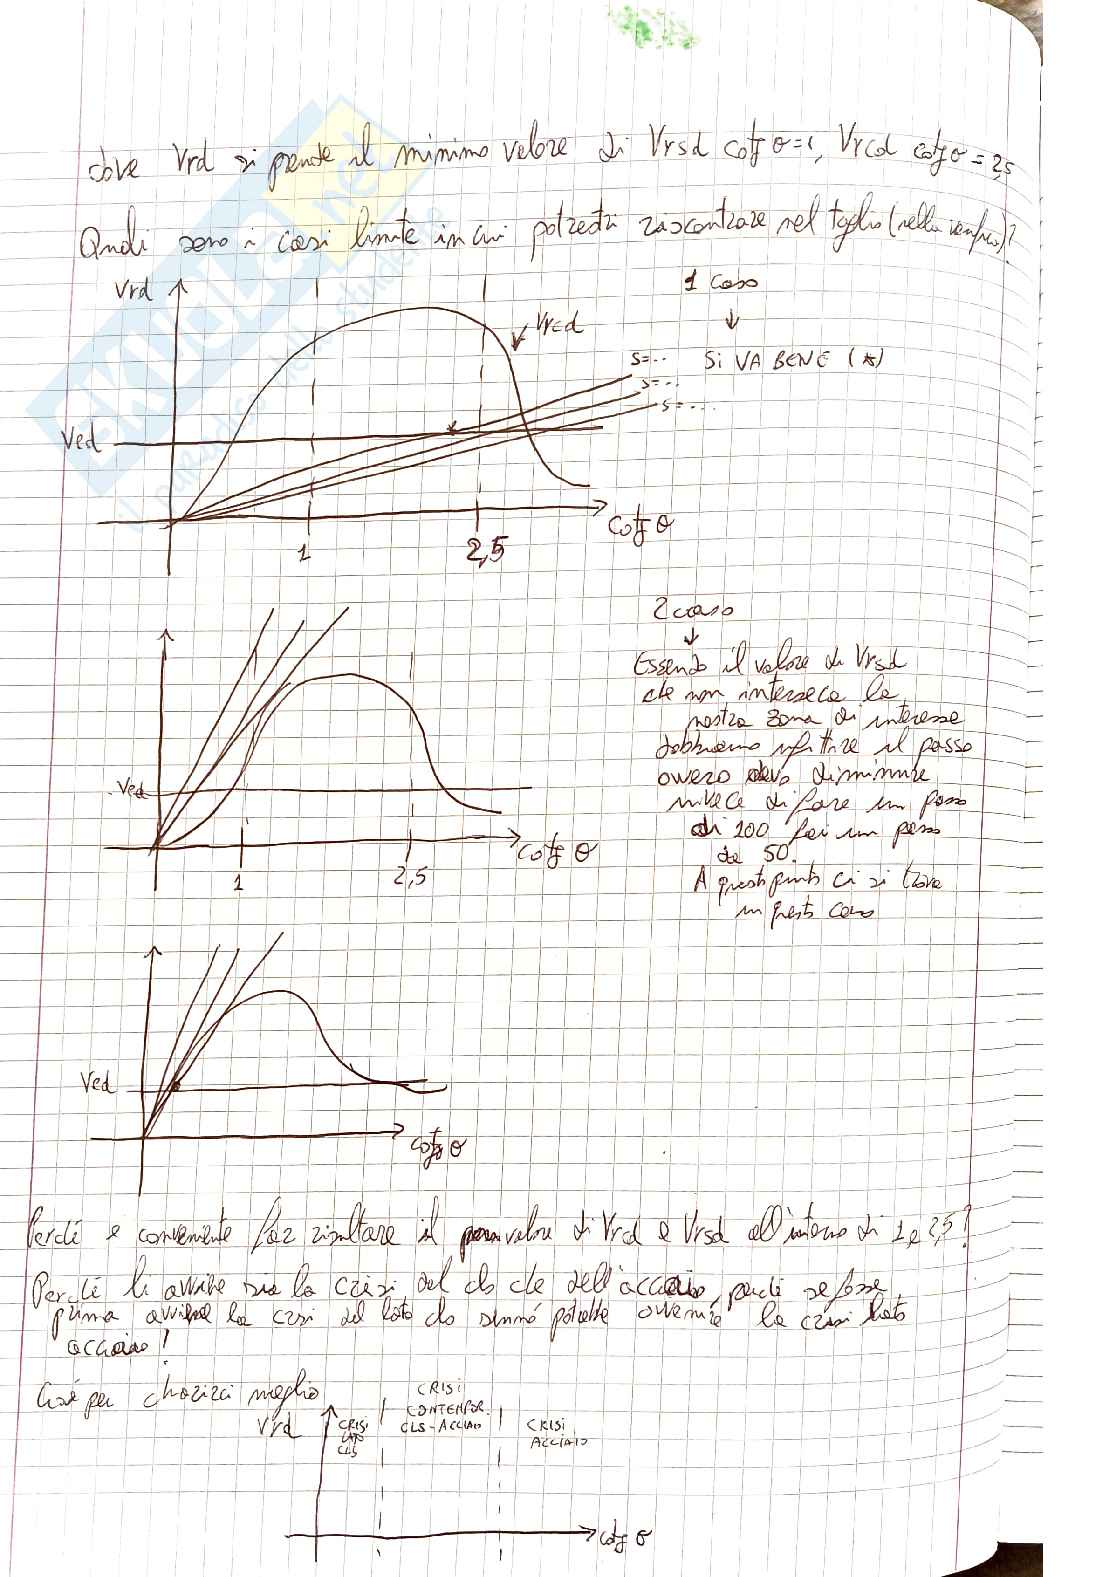 dove Vrd si prende il minimo valore di Vrsd cotg θ=1, Vrcd cotg θ = 2,5
Quali sono i casi limite in cui potresti riscontrare nel taglio (nella verifica)?
Vrd
1 caso
Vrcd
s=...
SI VA BENE (*)
s=...
s=...
Ved
cotg θ
1
2,5
2 caso
Essendo il valore di Vrsd
che non interseca la
nostra zona di interesse
dobbiamo infittire il passo
ovvero devo diminuire
invece di fare un passo
di 100 fai un passo
da 50.
A questo punto ci si trova
in questo caso
Ved
cotg θ
1
2,5
Ved
cotg θ
Perché è conveniente far risultare il valore di Vrcd e Vrsd all'interno di 1 e 2,5?
Perché lì avviene sia la crisi del cls che dell'acciaio, perché se fosse
prima avviene la crisi del lato cls sennò potrebbe avvenire la crisi lato
acciaio!
Cioè per chiarirci meglio
Vrd
CRISI
LATO
CLS
CRISI
CONTEMPOR.
CLS-ACCIAIO
CRISI
ACCIAIO
cotg θ
SKUOLA.net
il paradiso dello studente